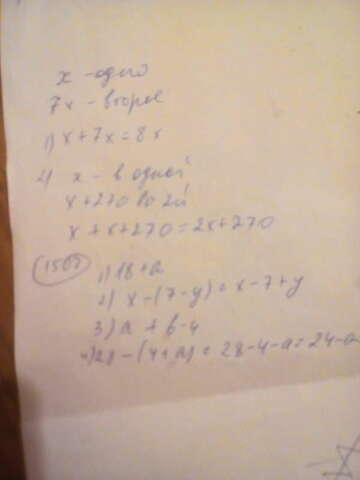 x - одно
7x - второе
1) x+7x=8x
2) x - в одной
x+270 во 2й
x+x+270=2x+270
1) 18+a
2) x-(7-y)=x-7+y
3) a+b-4
4) 28-(4+a)=28-4-a=24-a